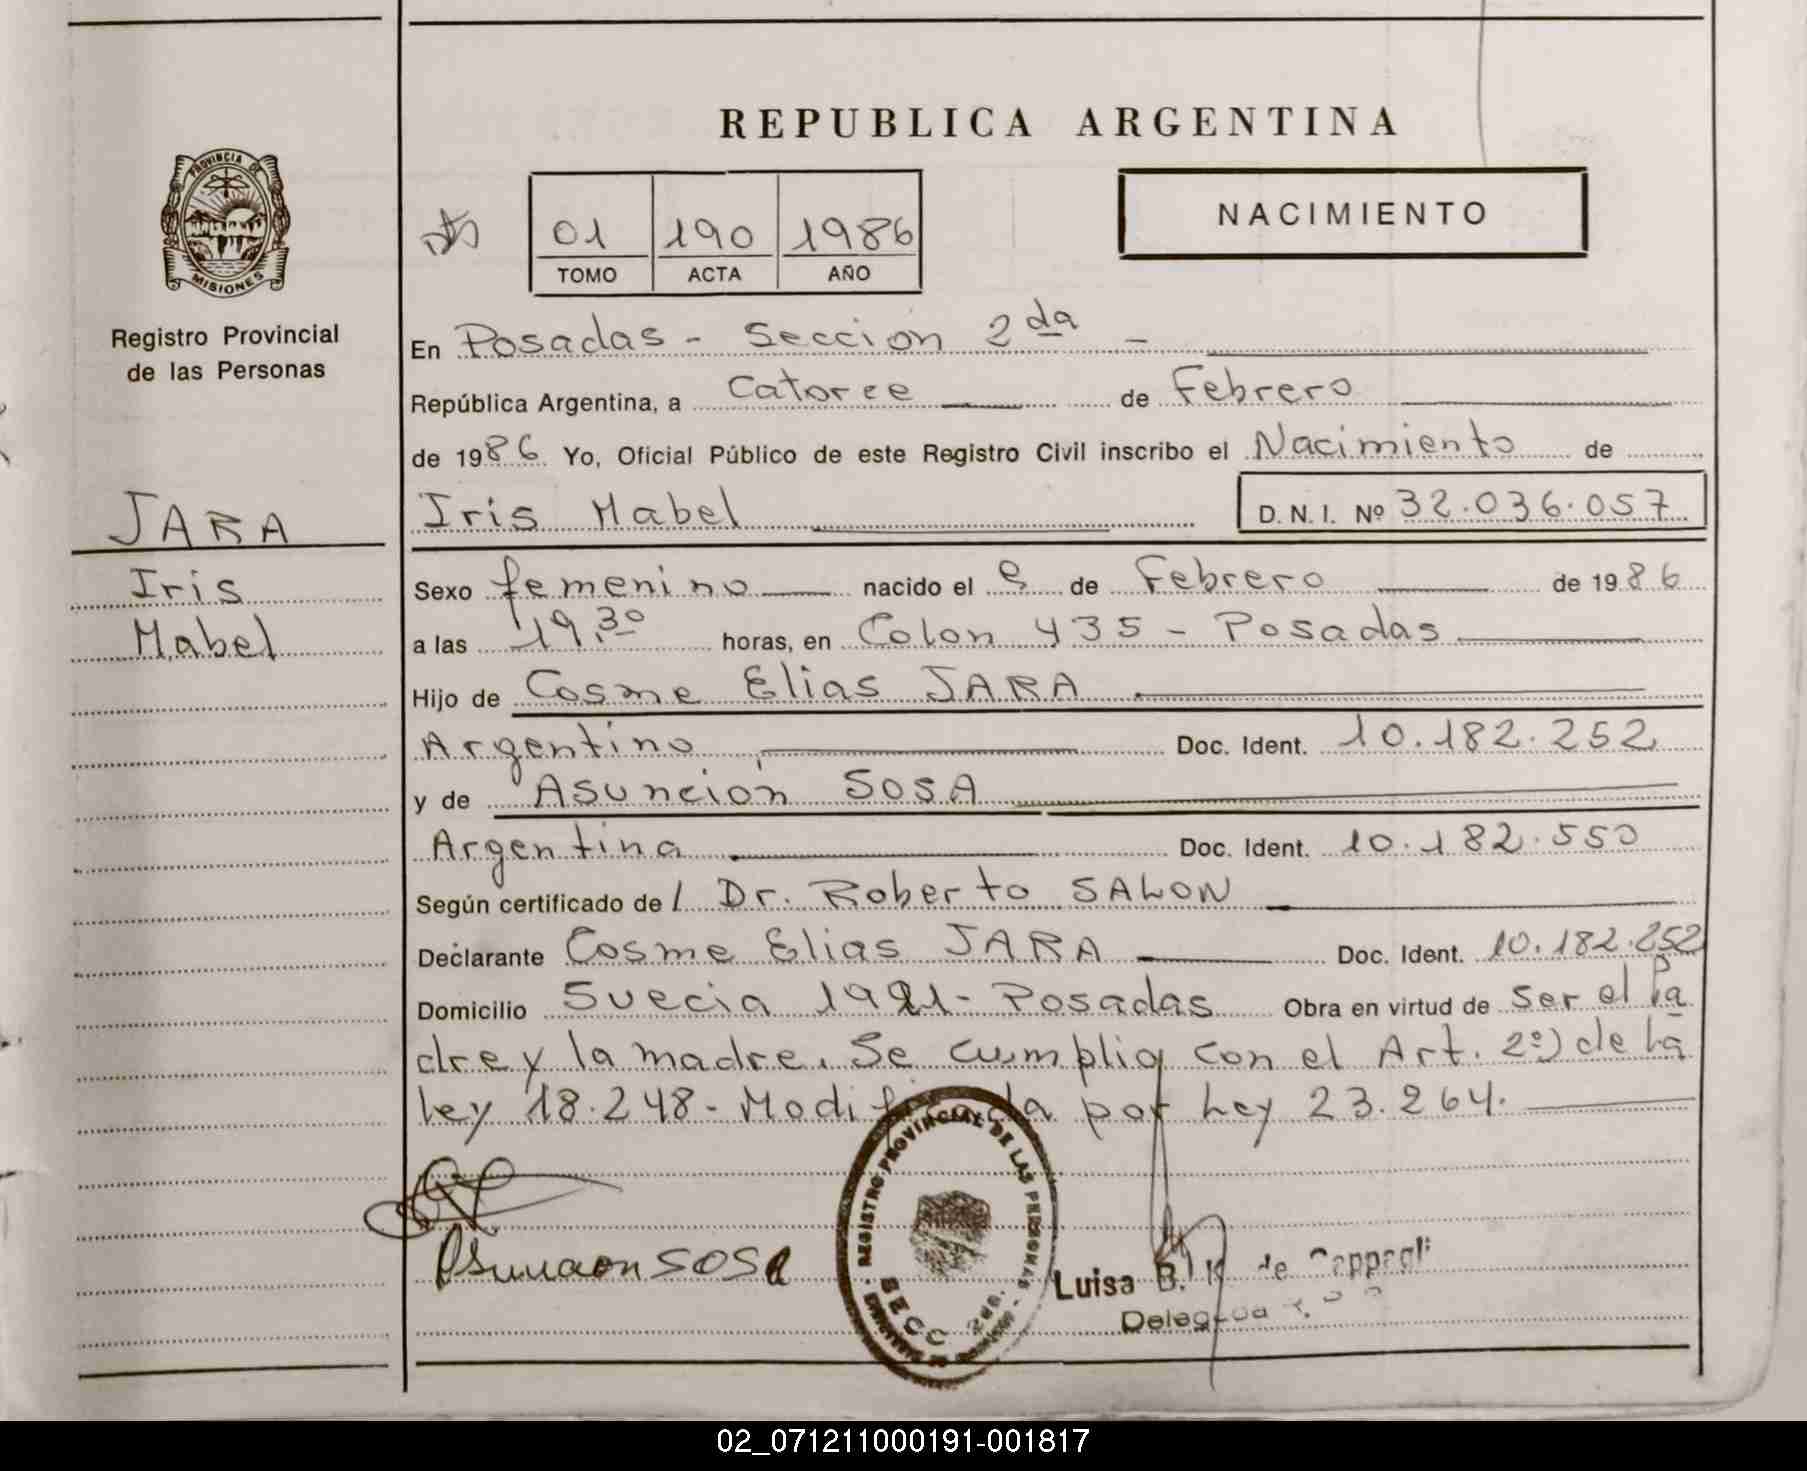 REPUBLICA ARGENTINA
PROVINCIA DE
MISIONES
Registro Provincial
de las Personas
01 190 1986
TOMO ACTA AÑO
NACIMIENTO
En Posadas - Sección 2da -
República Argentina, a Catorce de Febrero
de 1986 Yo, Oficial Público de este Registro Civil inscribo el Nacimiento de
JARA
Iris Mabel D.N.I. Nº 32.036.057
Iris
Mabel
Sexo femenino nacido el de Febrero de 1986
a las 19,30 horas, en Colon 435 - Posadas
Hijo de Cosme Elias JARA
Argentino Doc. Ident. 10.182.252
y de Asunción SOSA
Argentina Doc. Ident. 10.182.550
Según certificado de / Dr. Roberto SALON
Declarante Cosme Elias JARA Doc. Ident. 10.182.252
Domicilio Suecia - Posadas Obra en virtud de ser el Pa
dre y la madre. Se cumplio con el Art. 2º) de la
Ley 18.248 - Modificada por Ley 23.264.
REGISTRO PROVINCIAL DE LAS PERSONAS
SECC 2da.
Asuncion SOSA
Luisa B. de
02_071211000191-001817